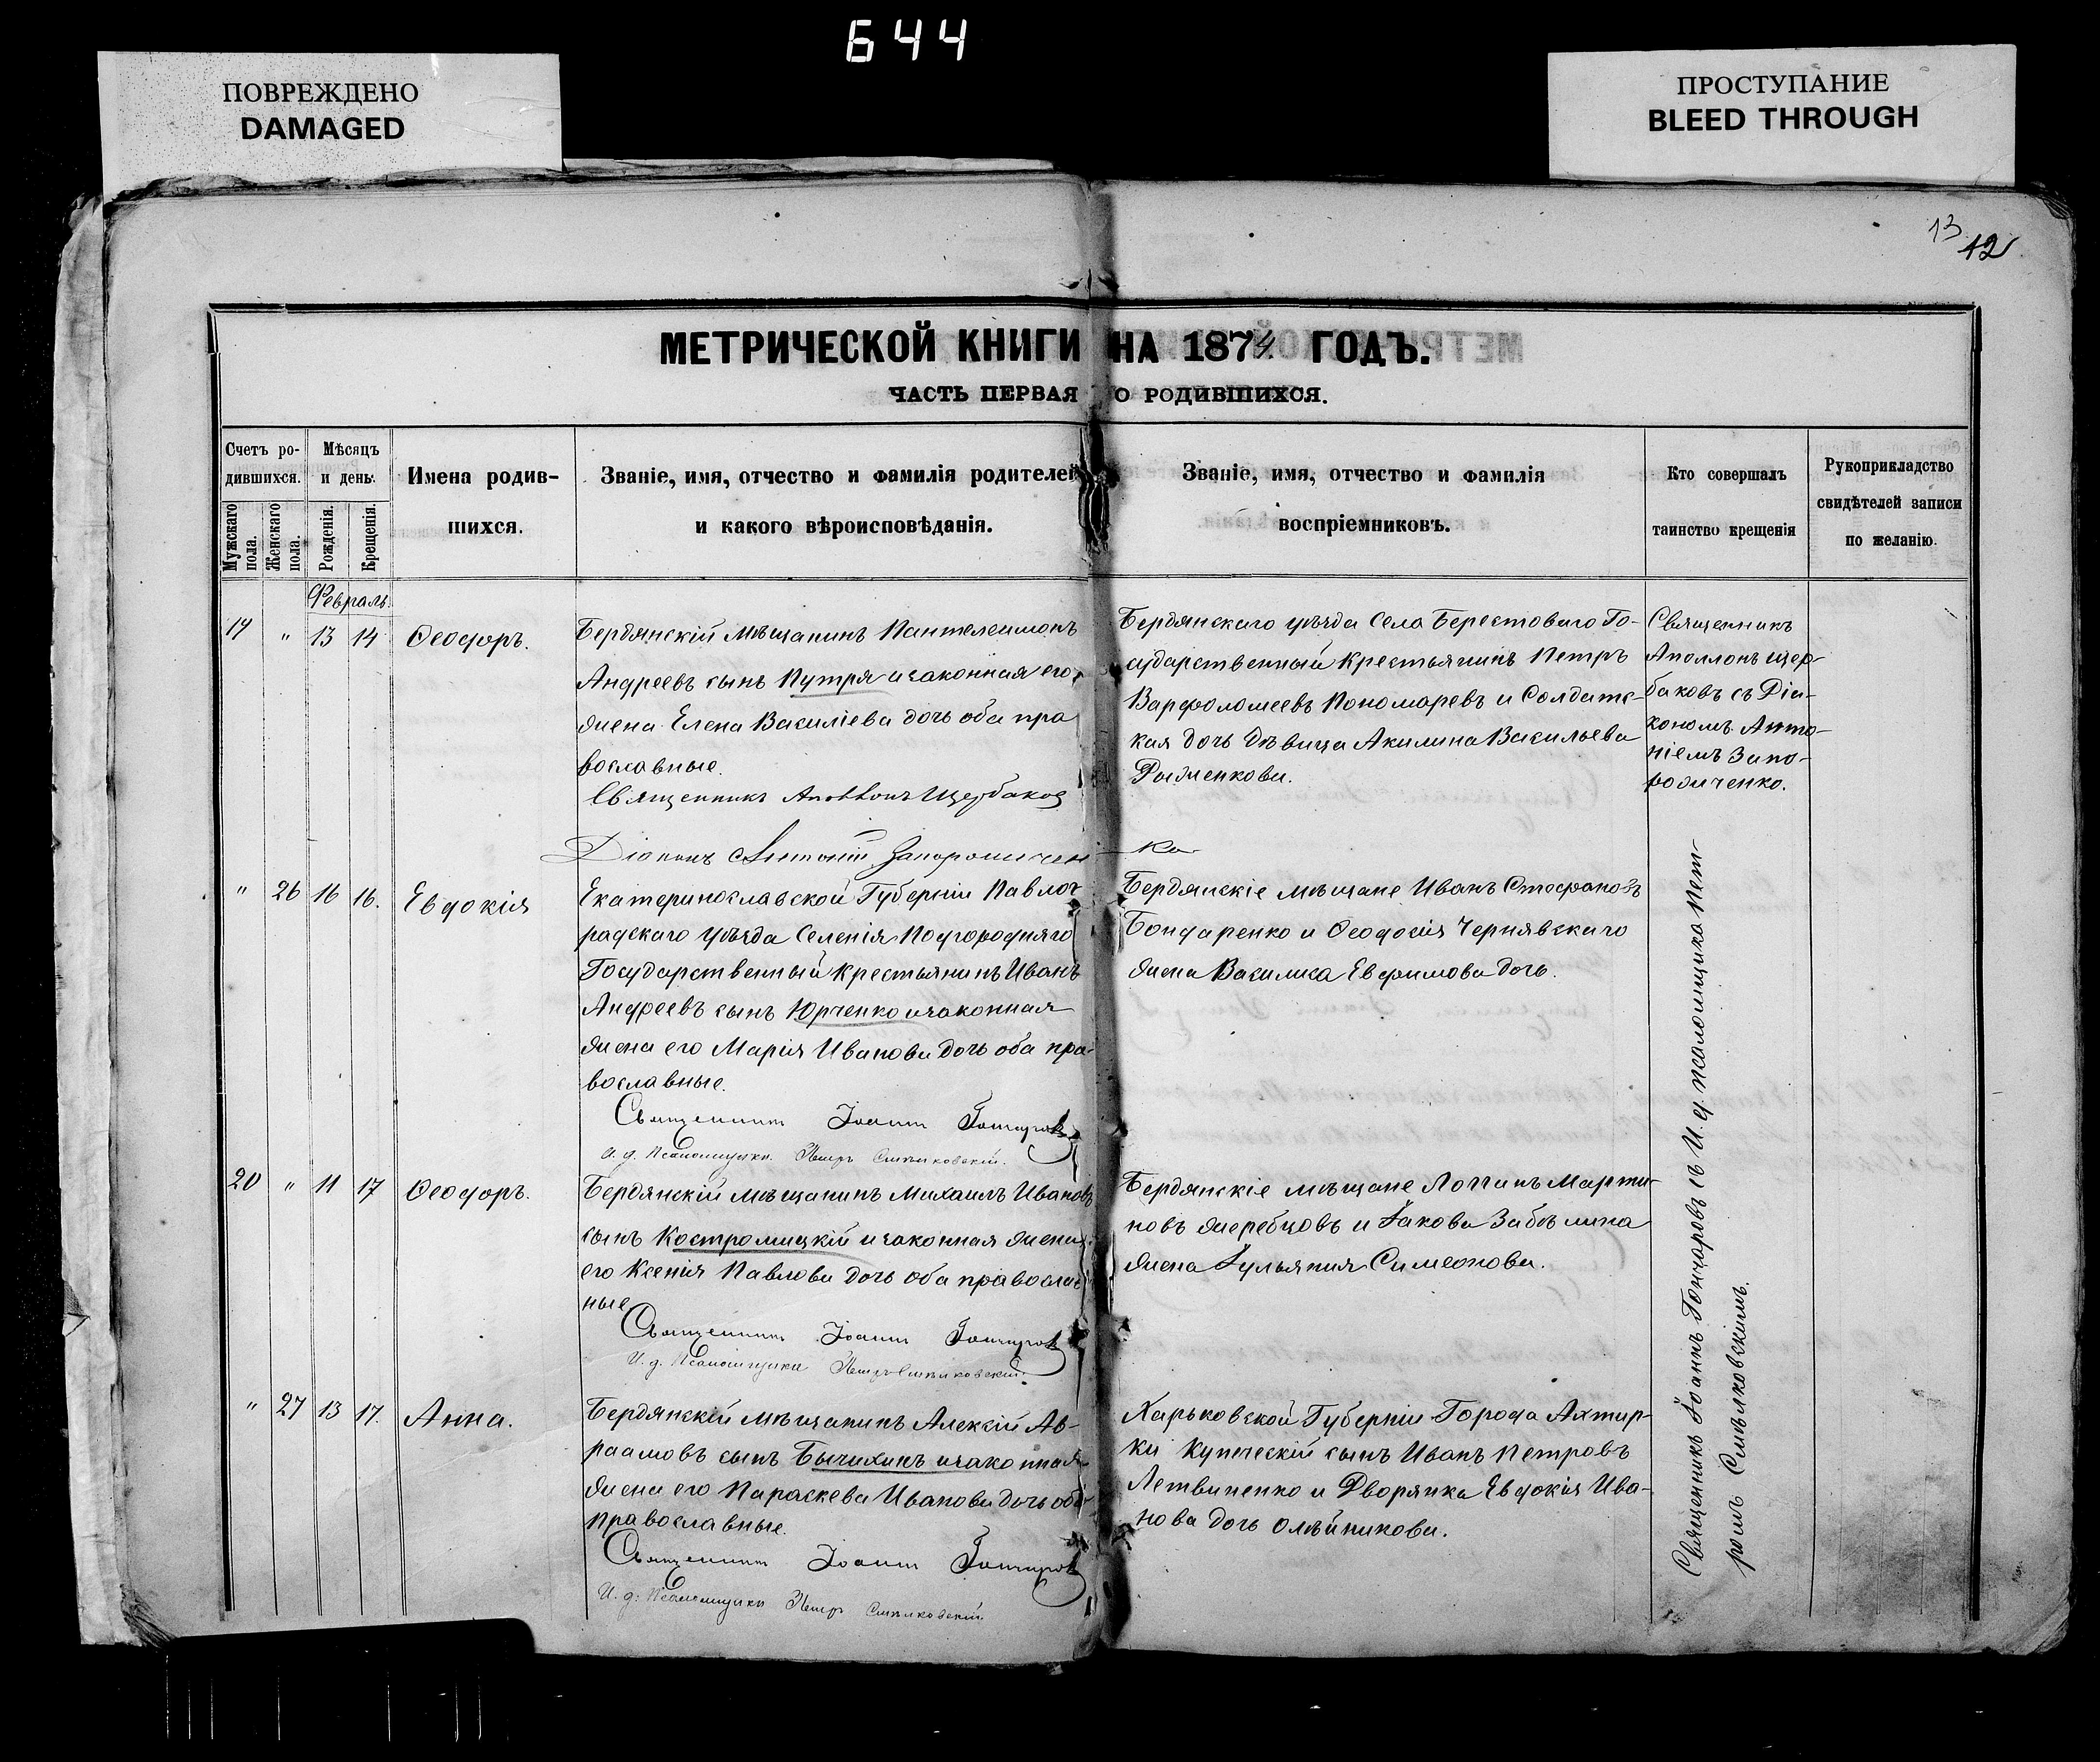 644
ПОВРЕЖДЕНО
DAMAGED
ПРОСТУПАНИЕ
BLEED THROUGH
13
12
МЕТРИЧЕСКОЙ КНИГИ НА 1874 ГОДЪ.
ЧАСТЬ ПЕРВАЯ О РОДИВШИХСЯ.
Счетъ ро-
дившихся.
Мужскаго пола.
Женскаго пола.
Мѣсяцъ
и день.
Рожденія.
Крещенія.
Имена родив-
шихся.
Званіе, имя, отчество и фамилія родителей
и какого вѣроисповѣданія.
Званіе, имя, отчество и фамилія
воспріемниковъ.
Кто совершалъ
таинство крещенія
Рукоприкладство
свидѣтелей записи
по желанію.
Февраль
19 " 13 14 Ѳеодоръ.
Бердянскій мѣщанинъ Пантелеимонъ
Андреевъ сынъ Путря и законная его
жена Елена Василіева дочь оба пра
вославные.
Священникъ Аполлонъ Щербаков
Діаконъ Антоній Запорожченко
Бердянскаго уѣзда Села Берестоваго Го-
сударственный крестьянинъ Петръ
Варфоломеевъ Пономаревъ и Солдатс-
кая дочь дѣвица Акилина Васильева
Рыженкова.
Священникъ
Аполлонъ Щер-
баковъ съ Діа-
кономъ Анто-
ніемъ Запо-
рожченко.
" 26 16 16. Евдокія
Екатеринославской Губерніи Павлог
радскаго уѣзда Селенія Подгородняго
Государственный крестьянинъ Иванъ
Андреевъ сынъ Юрченко и законная
жена его Марія Иванова дочь оба пра-
вославные.
Священникъ Іоаннъ Гончаровъ
И. д. Псаломщика Петръ Смѣлковскій.
Бердянскіе мѣщане Иванъ Стефановъ
Бондаренко и Ѳеодосія Чернявскаго
жена Василиса Евфимова дочь.
20 " 11 17 Ѳеодоръ.
Бердянскій мѣщанинъ Михаилъ Ивановъ
сынъ Костромицкій и законная жена
его Ксенія Павлова дочь оба православ
ные
Священникъ Іоаннъ Гончаровъ
И. д. Псаломщика Петръ Смѣлковскій.
Бердянскіе мѣщане Логгинъ Марти-
новъ Жеребцовъ и Іакова Забѣлина
жена Іульянія Симеонова.
" 27 13 17. Анна.
Бердянскій мѣщанинъ Алексій Ав-
раамовъ сынъ Бычихинъ и законная
жена его Параскева Иванова дочь оба
православные.
Священникъ Іоаннъ Гончаровъ
И. д. Псаломщика Петръ Смѣлковскій
Харьковской Губерніи Города Ахтыр-
ки купеческій сынъ Иванъ Петровъ
Летвиненко и Дворянка Евдокія Ива-
нова дочь Олѣйникова.
Священникъ Іоаннъ Гончаровъ съ И. д. псаломщика Пет-
ромъ Смѣлковскимъ.